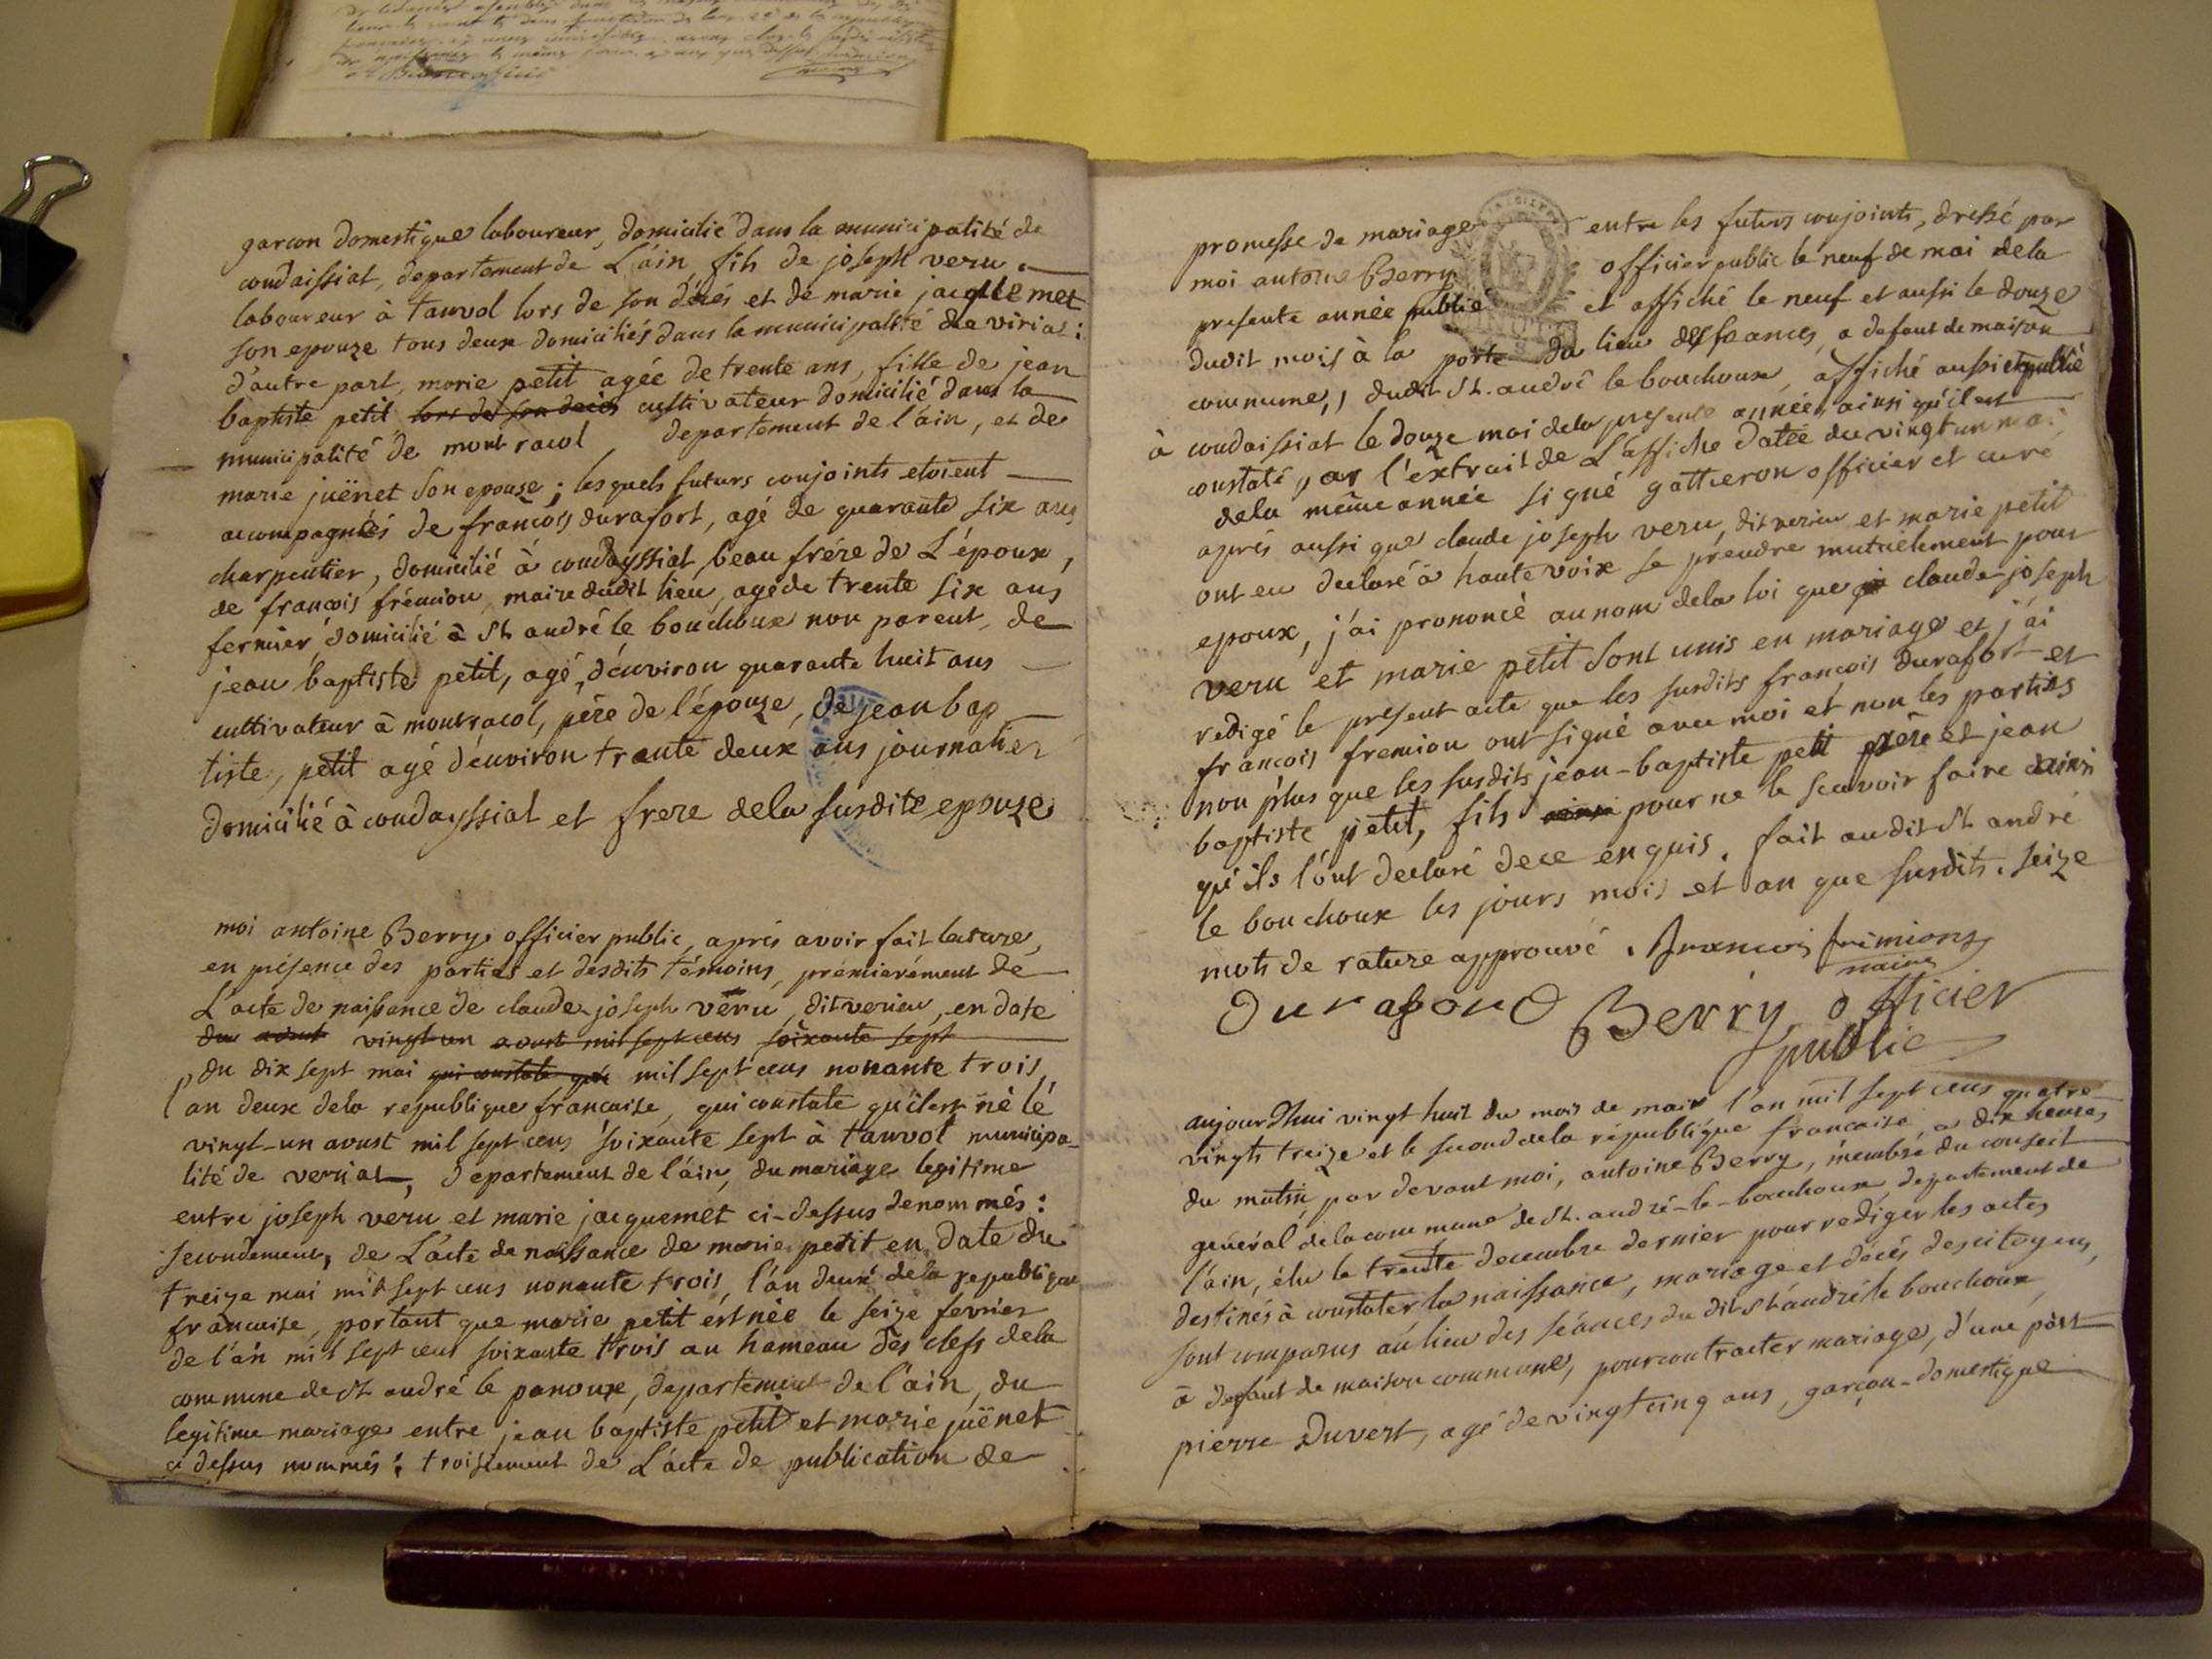 garcon domestique laboureur, domicilié dans la municipalité de
condaissiat, departement de L'ain, fils de joseph veru
laboureur à tanvol lors de son décés et de marie jacquemet
son epouze tous deux domiciliés dans la municipalité de viriat :
d'autre part, marie petit agée de trente ans, fille de jean
baptiste petit, lors de son decés cultivateur domicilié dans la
municipalité de montracol departement de l'ain, et de
marie juënet son epouse ; lesquels futurs conjoints etoient
acompagnées de francois durafort, agé de quarante six ans
charpentier, domicilié à condayssiat beau frére de L'époux,
de francois frémion, maire dudit lieu, agé de trente six ans
fermier, domicilié à St andré le bouchoux non parent, de
jean baptiste petit, agé, d'environ quarante huit ans
cultivateur à montracol, pére de l'épouze, de jean bap
tiste, petit agé d'environ trente deux ans journalier
domicilié à condayssiat et frere dela susdite epouze
moi antoine Berry officier public, aprés avoir fait lecture,
en présence des parties et desdits témoins, prémiérement de
L'acte de naissance de claude joseph véru, dit verieu, en date
du avout vingt un avout mil sept cens soixante sept
du dix sept mai qui constate que mil sept cens nonante trois,
l'an deux dela republique francaise, qui constate qu'il est né le
vingt-un avust mil sept cens soixante sept à tanvol municipa-
lité de veriat, departement de l'ain, du mariage legitime
entre joseph veru et marie jacquemet ci-dessus denommés :
secondement, de L'acte de naissance de marie petit en date du
treize mai mil sept cens nonante trois, l'an deux dela republique
francaise, portant que marie petit est née le seize février
de l'an mil sept cens soixante trois au hameau des clefs dela
commune de St andré le panoux, departement de l'ain, du
legitime mariage entre jean baptiste petit et marie juënet
ci dessus nommés : troisiement de L'acte de publication de
promesse de mariage entre les futurs conjoints, dressé par
moi antoine Berry officier public le neuf de mai dela
presente année publié et affiché le neuf et aussi le douze
dudit mois à la porte du lieu des seances, a defaut de maison
commune, dudit St. andré le bouchoux, affiché aussi et publié
à condaissiat le douze mai dela presente année, ainsi qu'il est
constaté, par l'extrait de L'affiche datée du vingt un mai
dela même année signé gattieron officier et curé
aprés aussi que claude joseph veru, dit verieu et marie petit
ont eu declaré à haute voix se prendre mutuélement pour
epoux, j'ai prononcé au nom dela loi que claude joseph
veru et marie petit sont unis en mariage et j'ai
redigé le present acte que les susdits francois durafort et
francois fremion ont signé avec moi et non les parties
non plus que les susdits jean-baptiste petit pére et jean
baptiste petit, fils ainsi pour ne le scavoir faire ainsi
qu'ils l'ont declaré de ce enquis. fait audit St andré
le bouchoux les jours mois et an que susdits. seize
mots de rature approuvé. francois frimions
maire
Durafort Berry officier
public
aujourd'hui vingt huit du mois de mai l'an mil sept cens quatre-
vingts treize et le second dela république francaise, a dix heures
du matin par devant moi, antoine Berry, membre du conseil
général dela commune de St. andré-le-bouchoux departement de
l'ain, élu le trente decembre dernier pour rediger les actes
destinés à constater la naissance, mariage et décés des citoyens,
sont comparus au lieu des séances du dit St andré le bouchoux,
à defaut de maison commune, pour contracter mariage, d'une part
pierre Duvert, agé de vingt cinq ans, garçon-domestique